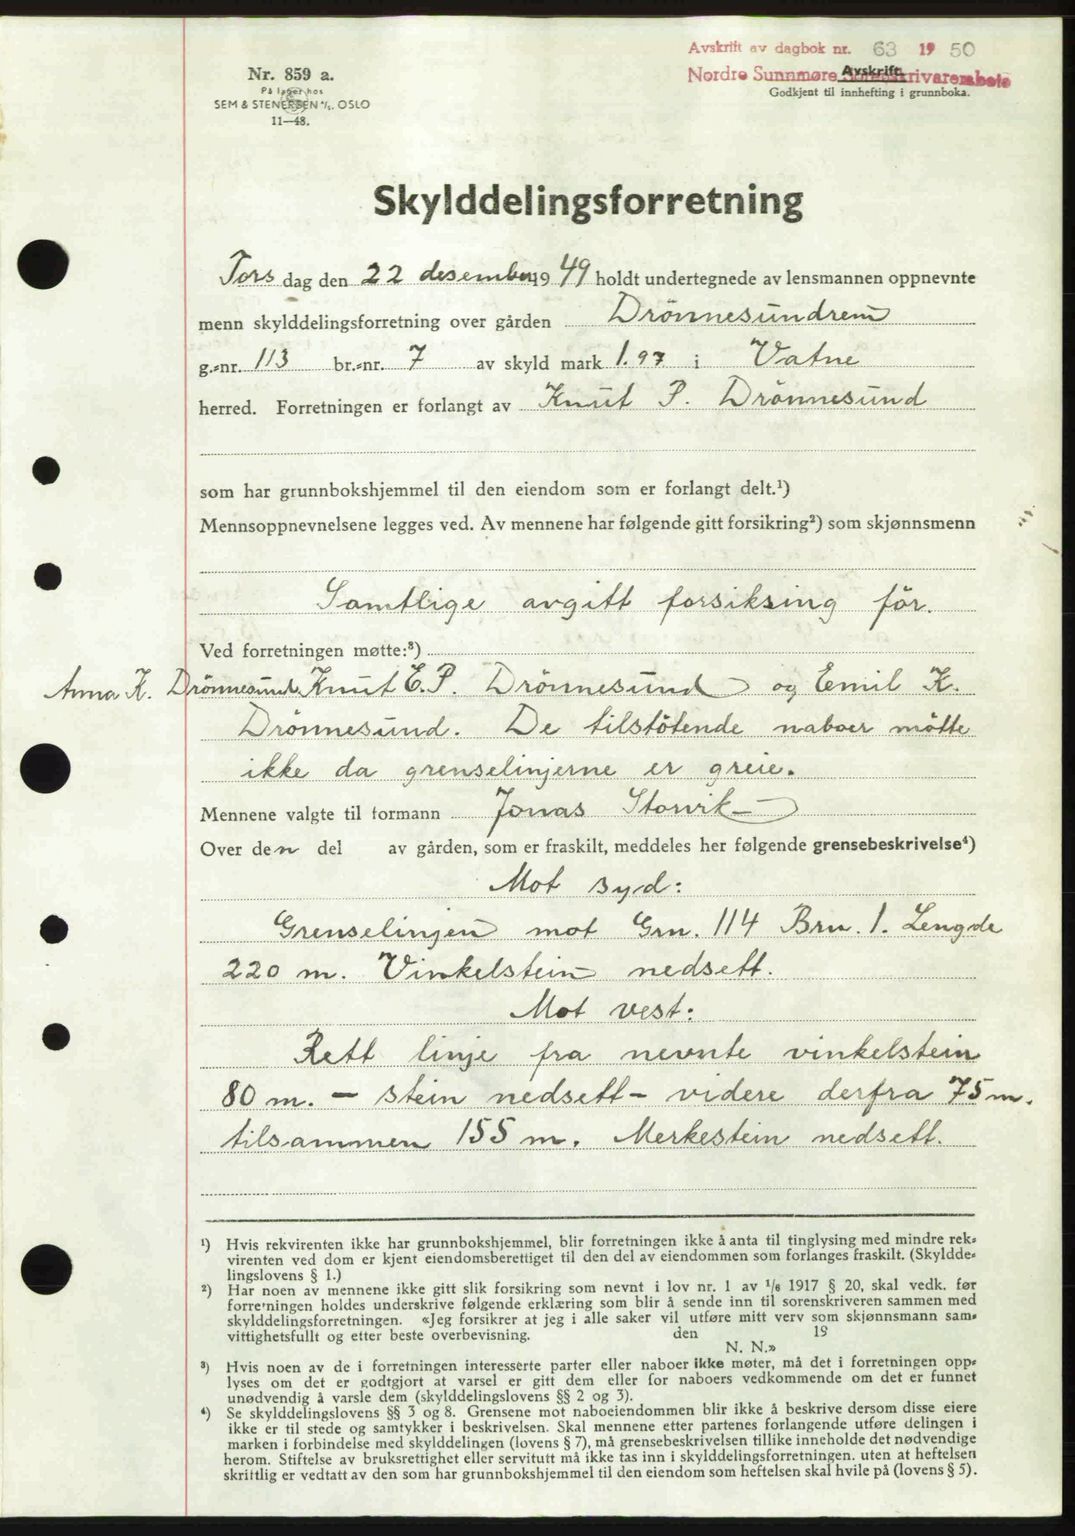 Avskrift av dagbok nr. 63 1950
Nordre Sunnmøre Sorenskrivarembete
Avskrift.
Godkjent til innhefting i grunnboka.
Nr. 859 a.
På lager hos
SEM & STENERSEN A/S. OSLO
11—48.
Skylddelingsforretning
Torsdag den 22 desember 1949 holdt undertegnede av lensmannen oppnevnte
menn skylddelingsforretning over gården Drönnesundrem
g.-nr. 113 br.-nr. 7 av skyld mark 1.97 i Vatne
herred. Forretningen er forlangt av Knut P. Drönnesund
som har grunnbokshjemmel til den eiendom som er forlangt delt.¹)
Mennsoppnevnelsene legges ved. Av mennene har følgende gitt forsikring²) som skjønnsmenn
Samtlige avgitt forsiksing för.
Ved forretningen møtte:³)
Anna K. Drönnesund Knut E.P. Drönnesund og Emil K.
Drönnesund. De tilstötende naboer mötte
ikke da grenselinjerne er greie.
Mennene valgte til formann Jonas Storvik
Over den del av gården, som er fraskilt, meddeles her følgende grensebeskrivelse⁴)
Mot syd:
Grenselinjen mot Grn. 114 Brn. 1. Lengde
220 m. Vinkelstein nedsett.
Mot vest:
Rett linje fra nevnte vinkelstein
80 m. - stein nedsett - videre derfra 75 m.
tilsammen 155 m. Merkestein nedsett.
¹) Hvis rekvirenten ikke har grunnbokshjemmel, blir forretningen ikke å anta til tinglysing med mindre rek-
virenten ved dom er kjent eiendomsberettiget til den del av eiendommen som forlanges fraskilt. (Skyldde-
lingslovens § 1.)
²) Har noen av mennene ikke gitt slik forsikring som nevnt i lov nr. 1 av 1/6 1917 § 20, skal vedk. før
forretningen holdes underskrive følgende erklæring som blir å sende inn til sorenskriveren sammen med
skylddelingsforretningen. «Jeg forsikrer at jeg i alle saker vil utføre mitt verv som skjønnsmann sam-
vittighetsfullt og etter beste overbevisning. den 19
N. N.»
³) Hvis noen av de i forretningen interesserte parter eller naboer ikke møter, må det i forretningen opp-
lyses om det er godtgjort at varsel er gitt dem eller for naboers vedkommende om det er funnet
unødvendig å varsle dem (skylddelingslovens §§ 2 og 3).
⁴) Se skylddelingslovens §§ 3 og 8. Grensene mot naboeiendommen blir ikke å beskrive dersom disse eiere
ikke er til stede og samtykker i beskrivelsen. Skal mennene etter partenes forlangende utføre delingen i
marken i forbindelse med skylddelingen (lovens § 7), må grensebeskrivelsen tillike inneholde det nødvendige
herom. Stiftelse av bruksrettighet eller servitutt må ikke tas inn i skylddelingsforretningen, uten at heftelsen
skriftlig er vedtatt av den som har grunnbokshjemmel til den eiendom som heftelsen skal hvile på (lovens § 5).